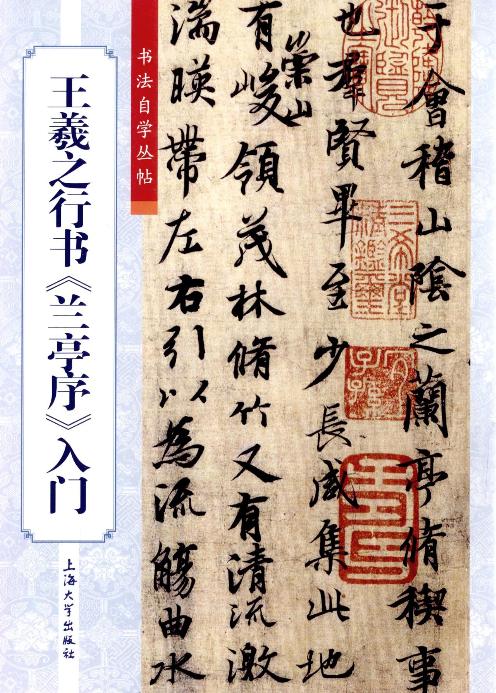 书法自学丛帖
王羲之行书《兰亭序》入门
上海大学出版社
于會稽山陰之蘭亭脩稧事
也群賢畢至少長咸集此地
有崇山峻領茂林脩竹又有清流激
湍暎帶左右引以為流觴曲水
三希堂精鑑璽
宜子孫